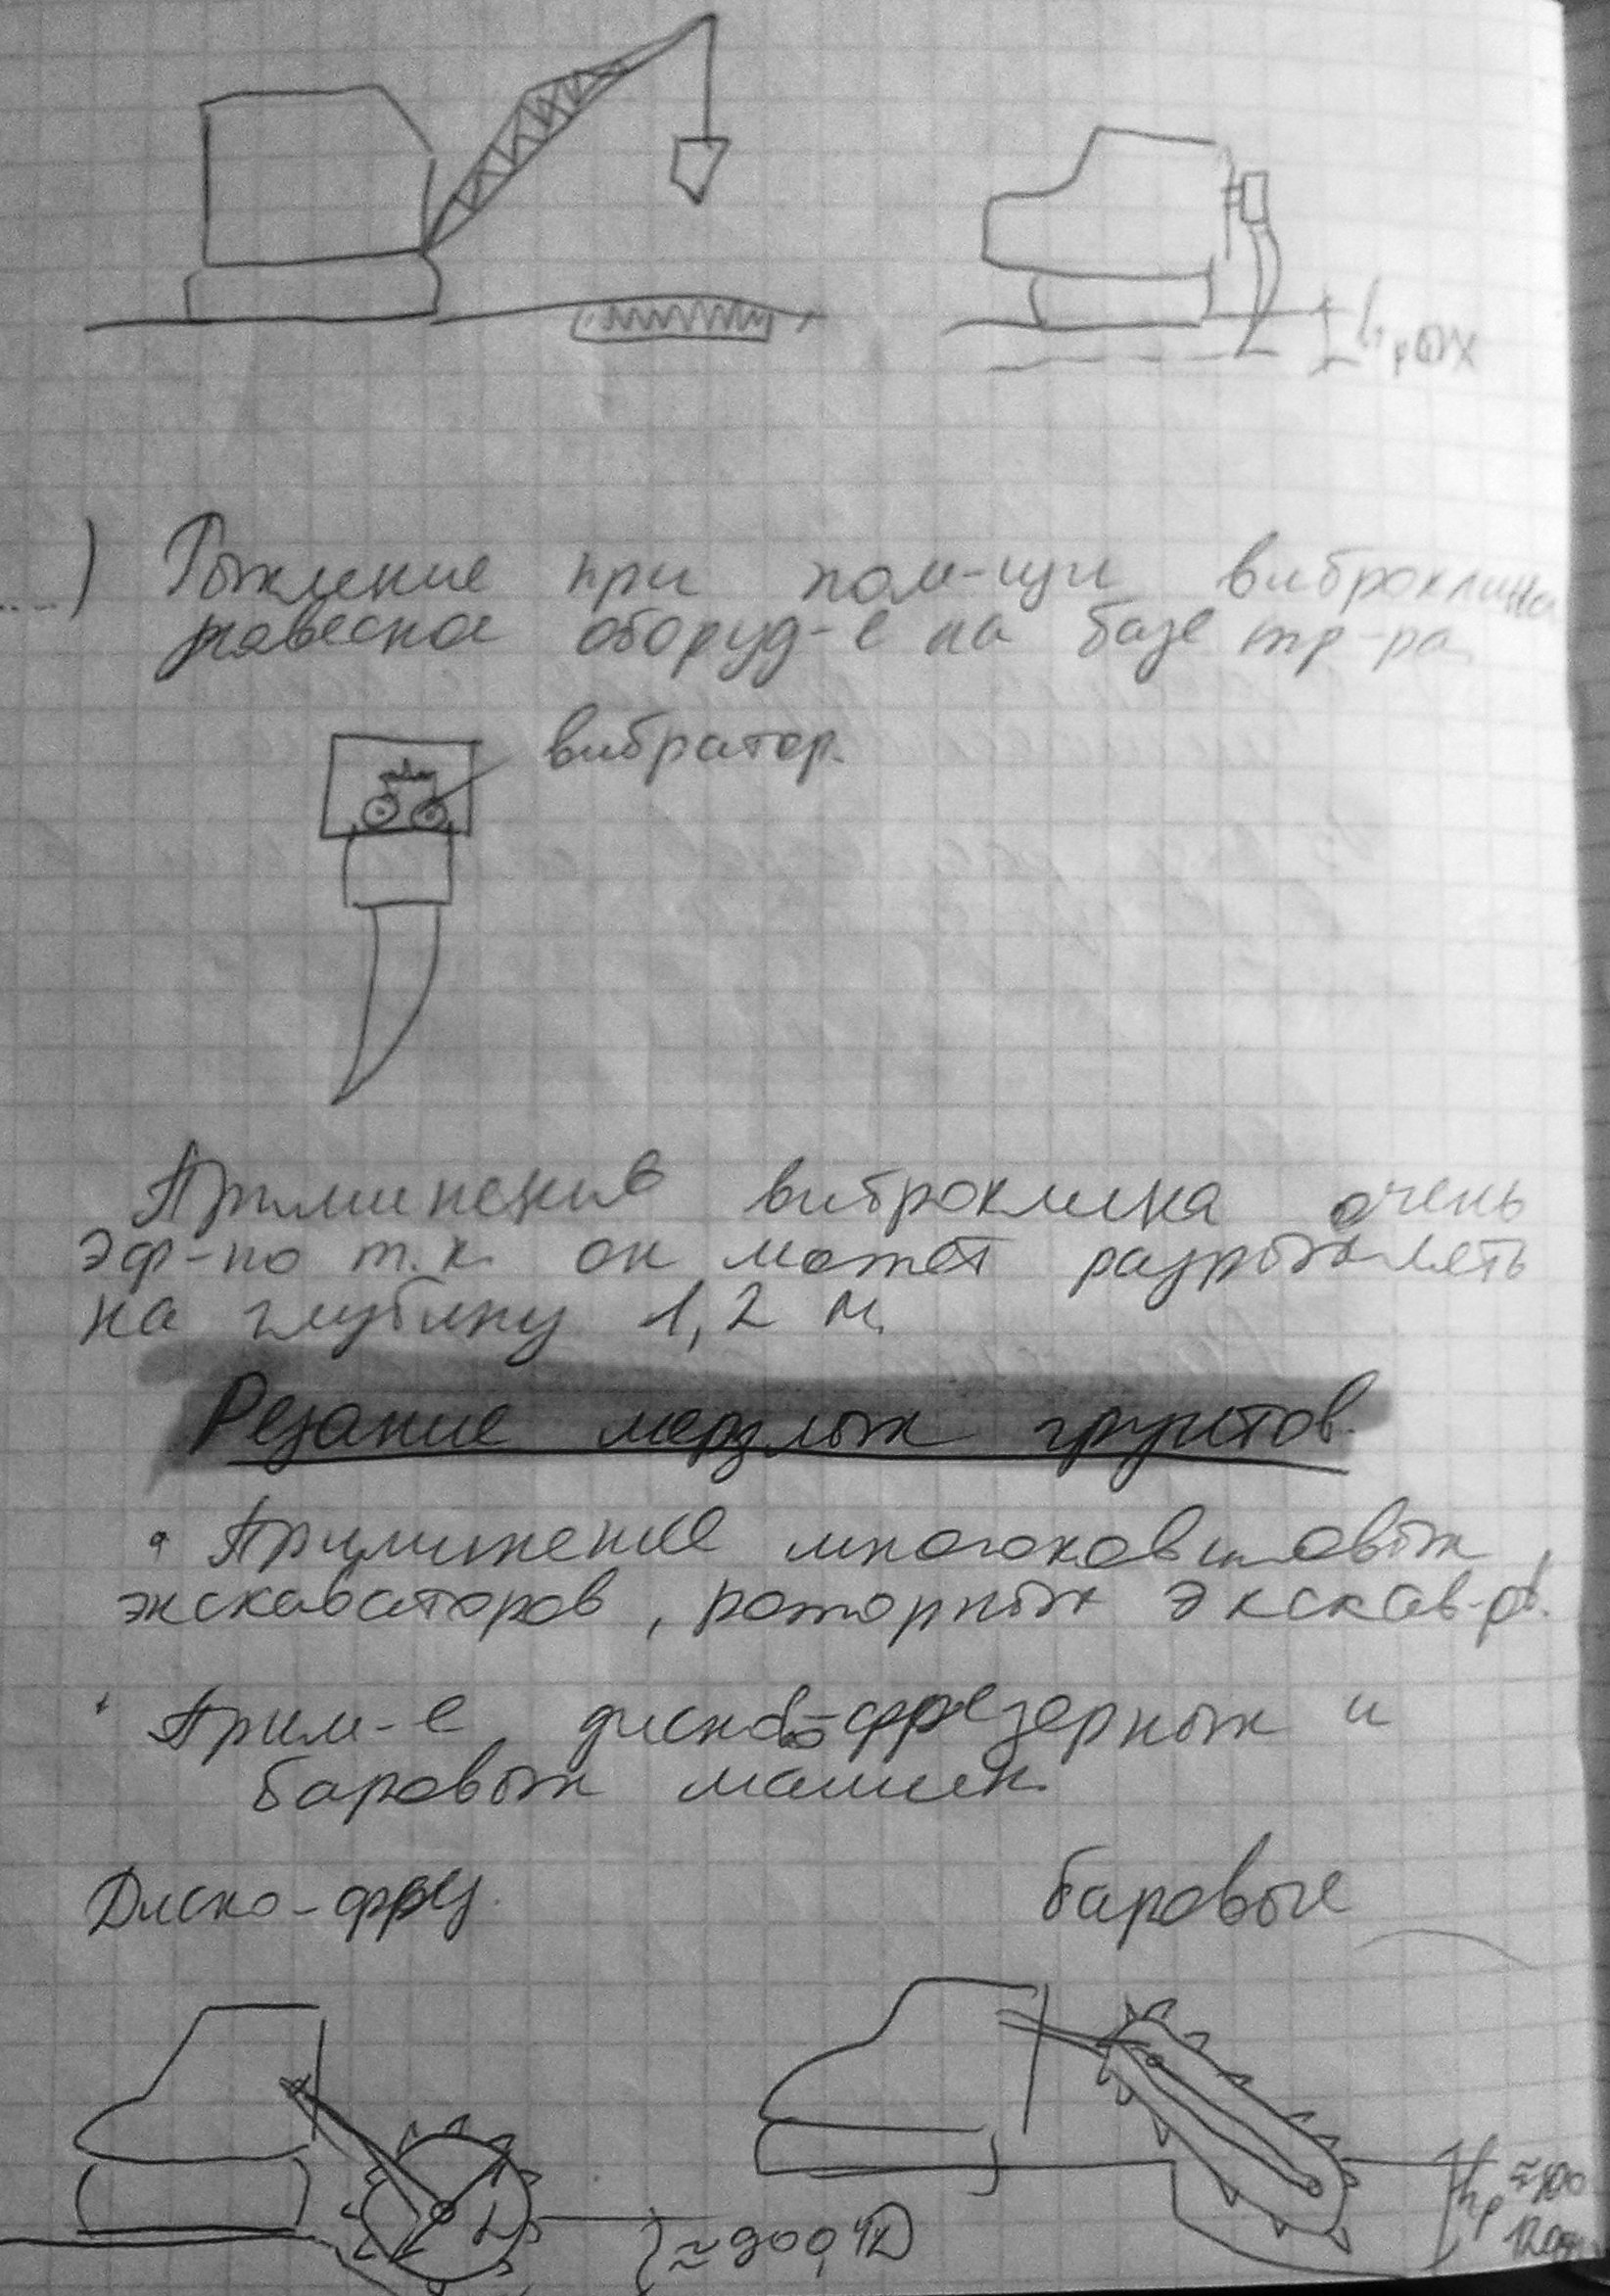 hрых
...) Рыхление при пом-щи виброклина
навесное оборуд-е на базе тр-ра
вибратор.
Применение виброклина очень
эф-но т.к. он может разрыхлять
на глубину 1,2 м.
Резание мерзлых грунтов.
• Применение многоковшовых
экскаваторов, роторных экскав-ров.
• Прим-е диско-фрезерных и
баровых машин.
Диско-фрез. баровые
≈900, hр ≈